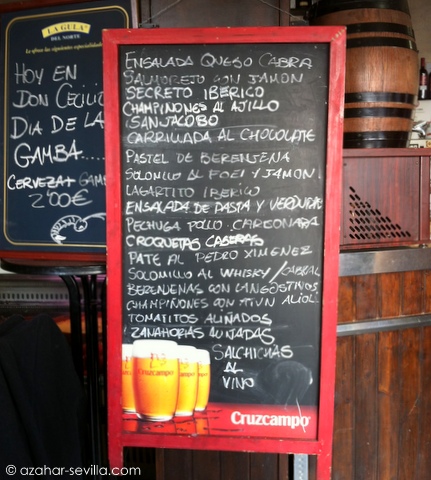 LA GULA
DEL NORTE
HOY EN
DON CECILIO
DIA DE LA
GAMBA....
CERVEZA + GAMB
2'00€
ENSALADA QUESO CABRA
SALMOREJO CON JAMON
SECRETO IBERICO
CHAMPIÑONES AL AJILLO
SANJACOBO
CARRILLADA AL CHOCOLATE
PASTEL DE BERENJENA
SOLOMILLO AL FOEI Y JAMON
LAGARTITO IBERICO
ENSALADA DE PASTA Y VERDURAS
PECHUGA POLLO CARBONARA
CROQUETAS CASERAS
PATE AL PEDRO XIMENEZ
SOLOMILLO AL WHISKY / CABRAL
BERENJENAS CON LANGOSTINOS
CHAMPIÑONES CON ALIOLI
TOMATITOS ALIÑADOS
ZANAHORAS ALIÑADAS
SALCHICHAS
AL
VINO
Cruzcampo
Cruzcampo
© azahar-sevilla.com